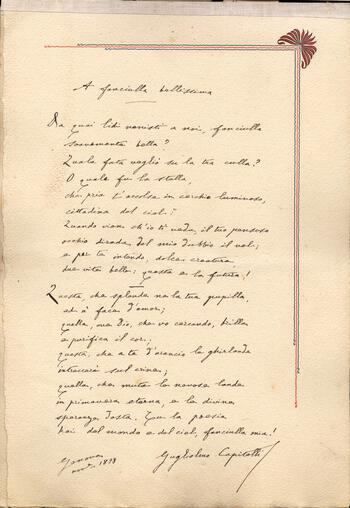 A fanciulla bellissima
Da quai lidi venisti a noi, fanciulla
soavemente bella?
Quale fata vegliò su la tua culla?
O quale fu la stella,
che pria t'accolse in cerchio luminoso,
cittadina del ciel?
Quando vien ch'io ti veda, il tuo pensoso
occhio dirada del mio dubbio il vel;
e per te intendo, dolce creatura,
due vite belle: questa e la futura!
Questa, che splende ne la tua pupilla,
ed è face d'amor;
quella, ove Dio, che vo cercando, brilla
e purifica il cor;
questa, che a te d'arancio la ghirlanda
intreccerà sul crine;
quella, che muta la nevosa landa
in primavera eterna, e le divine
speranze desta. Tu la poesia
hai del mondo e del ciel, fanciulla mia!
Genova 1898
Guglielmo Capitelli